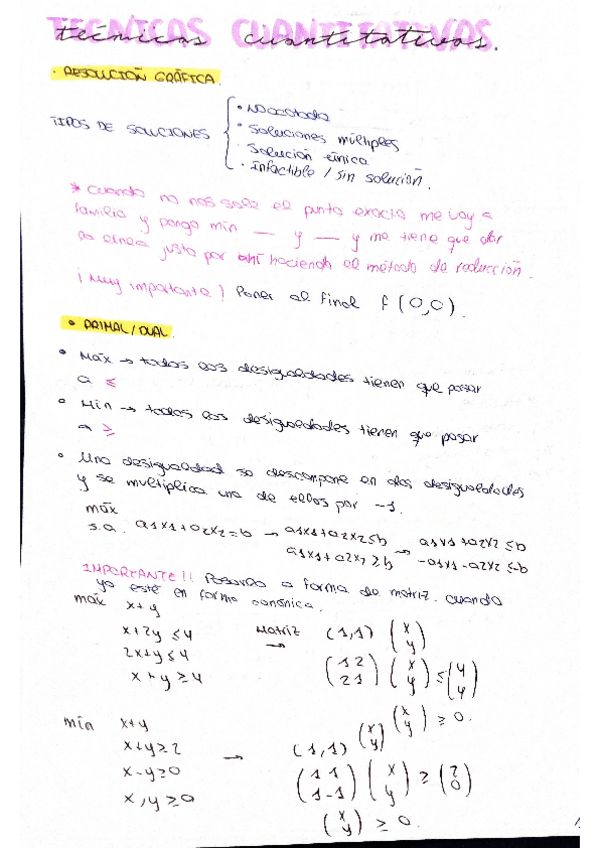 TÉCNICAS CUANTITATIVAS.
técnicas cuantitativas.
· RESOLUCIÓN GRÁFICA.
TIPOS DE SOLUCIONES { • No acotada
• Soluciones múltiples
· Solución única
· Infactible / sin solución.
* Cuando no nos sale el punto exacto me voy a
familia y pongo min — y — y me tiene que dar
la línea justo por ahí haciendo el método de reducción.
¡Muy importante! Poner al final f(0,0).
• PRIMAL/DUAL.
• Máx → todas las desigualdades tienen que pasar
a ≤
• Min → todas las desigualdades tienen que pasar
a ≥
• Una desigualdad se descompone en dos desigualdades
y se multiplica una de ellas por -1.
máx
s.a. a1x1+a2x2=b → a1x1+a2x2≤b → a1x1+a2x2≤b
a1x1+a2x2≥b -a1x1-a2x2≤-b
IMPORTANTE!! Pasarlo a forma de matriz. cuando
ya esté en forma canónica.
máx x+y
x+2y≤4 Matriz → (1,1) (x y)
2x+y≤4 (1 2 2 1) (x y) ≤ (4 4)
x+y≥4
(x y) ≥ 0.
min x+y
x+y≥2 → (1,1) (x y)
x-y≥0 (1 1 1 -1) (x y) ≥ (2 0)
x,y≥0
(x y) ≥ 0.